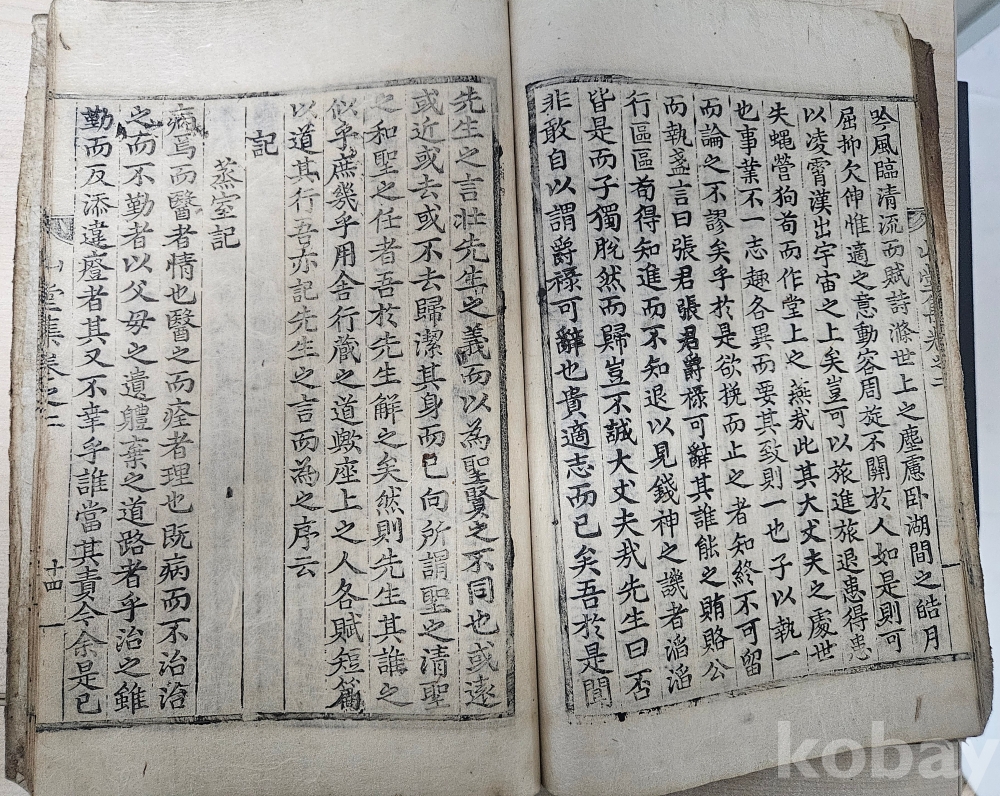 吟風臨清流而賦詩滌世上之塵慮臥湖間之皓月
屈抑欠伸惟適之意動容周旋不關於人如是則可
以凌霄漢出宇宙之上矣豈可以旅進旅退患得患
失蝇營狗苟而作堂上之燕哉此其大丈夫之處世
也事業不一志趣各異而要其致則一也子以執一
而論之不謬矣乎於是欲挽而止之者知終不可留
而執盞言曰張君張君爵祿可辭其誰能之賄賂公
行區區苟得知進而不知退以見錢神之譏者滔滔
皆是而子獨脫然而歸豈不誠大丈夫哉先生曰否
非敢自以謂爵祿可辭也貴適志而已矣吾於是聞
山堂集卷之二
先生之言壯先生之義而以為聖賢之不同也或遠
或近或去或不去歸潔其身而已向所謂聖之清聖
之和聖之任者吾於先生解之矣然則先生其誰之
似乎庶幾乎用舍行蔵之道歟座上之人各賦短篇
以道其行吾亦記先生之言而為之序云
記
蒸室記
病焉而醫者情也醫之而痊者理也既病而不治治
之而不勤者以父母之遺體棄之道路者乎治之雖
勤而反添違癊者其又不幸乎誰當其責今余是已
山堂集卷之二
十四
kobay